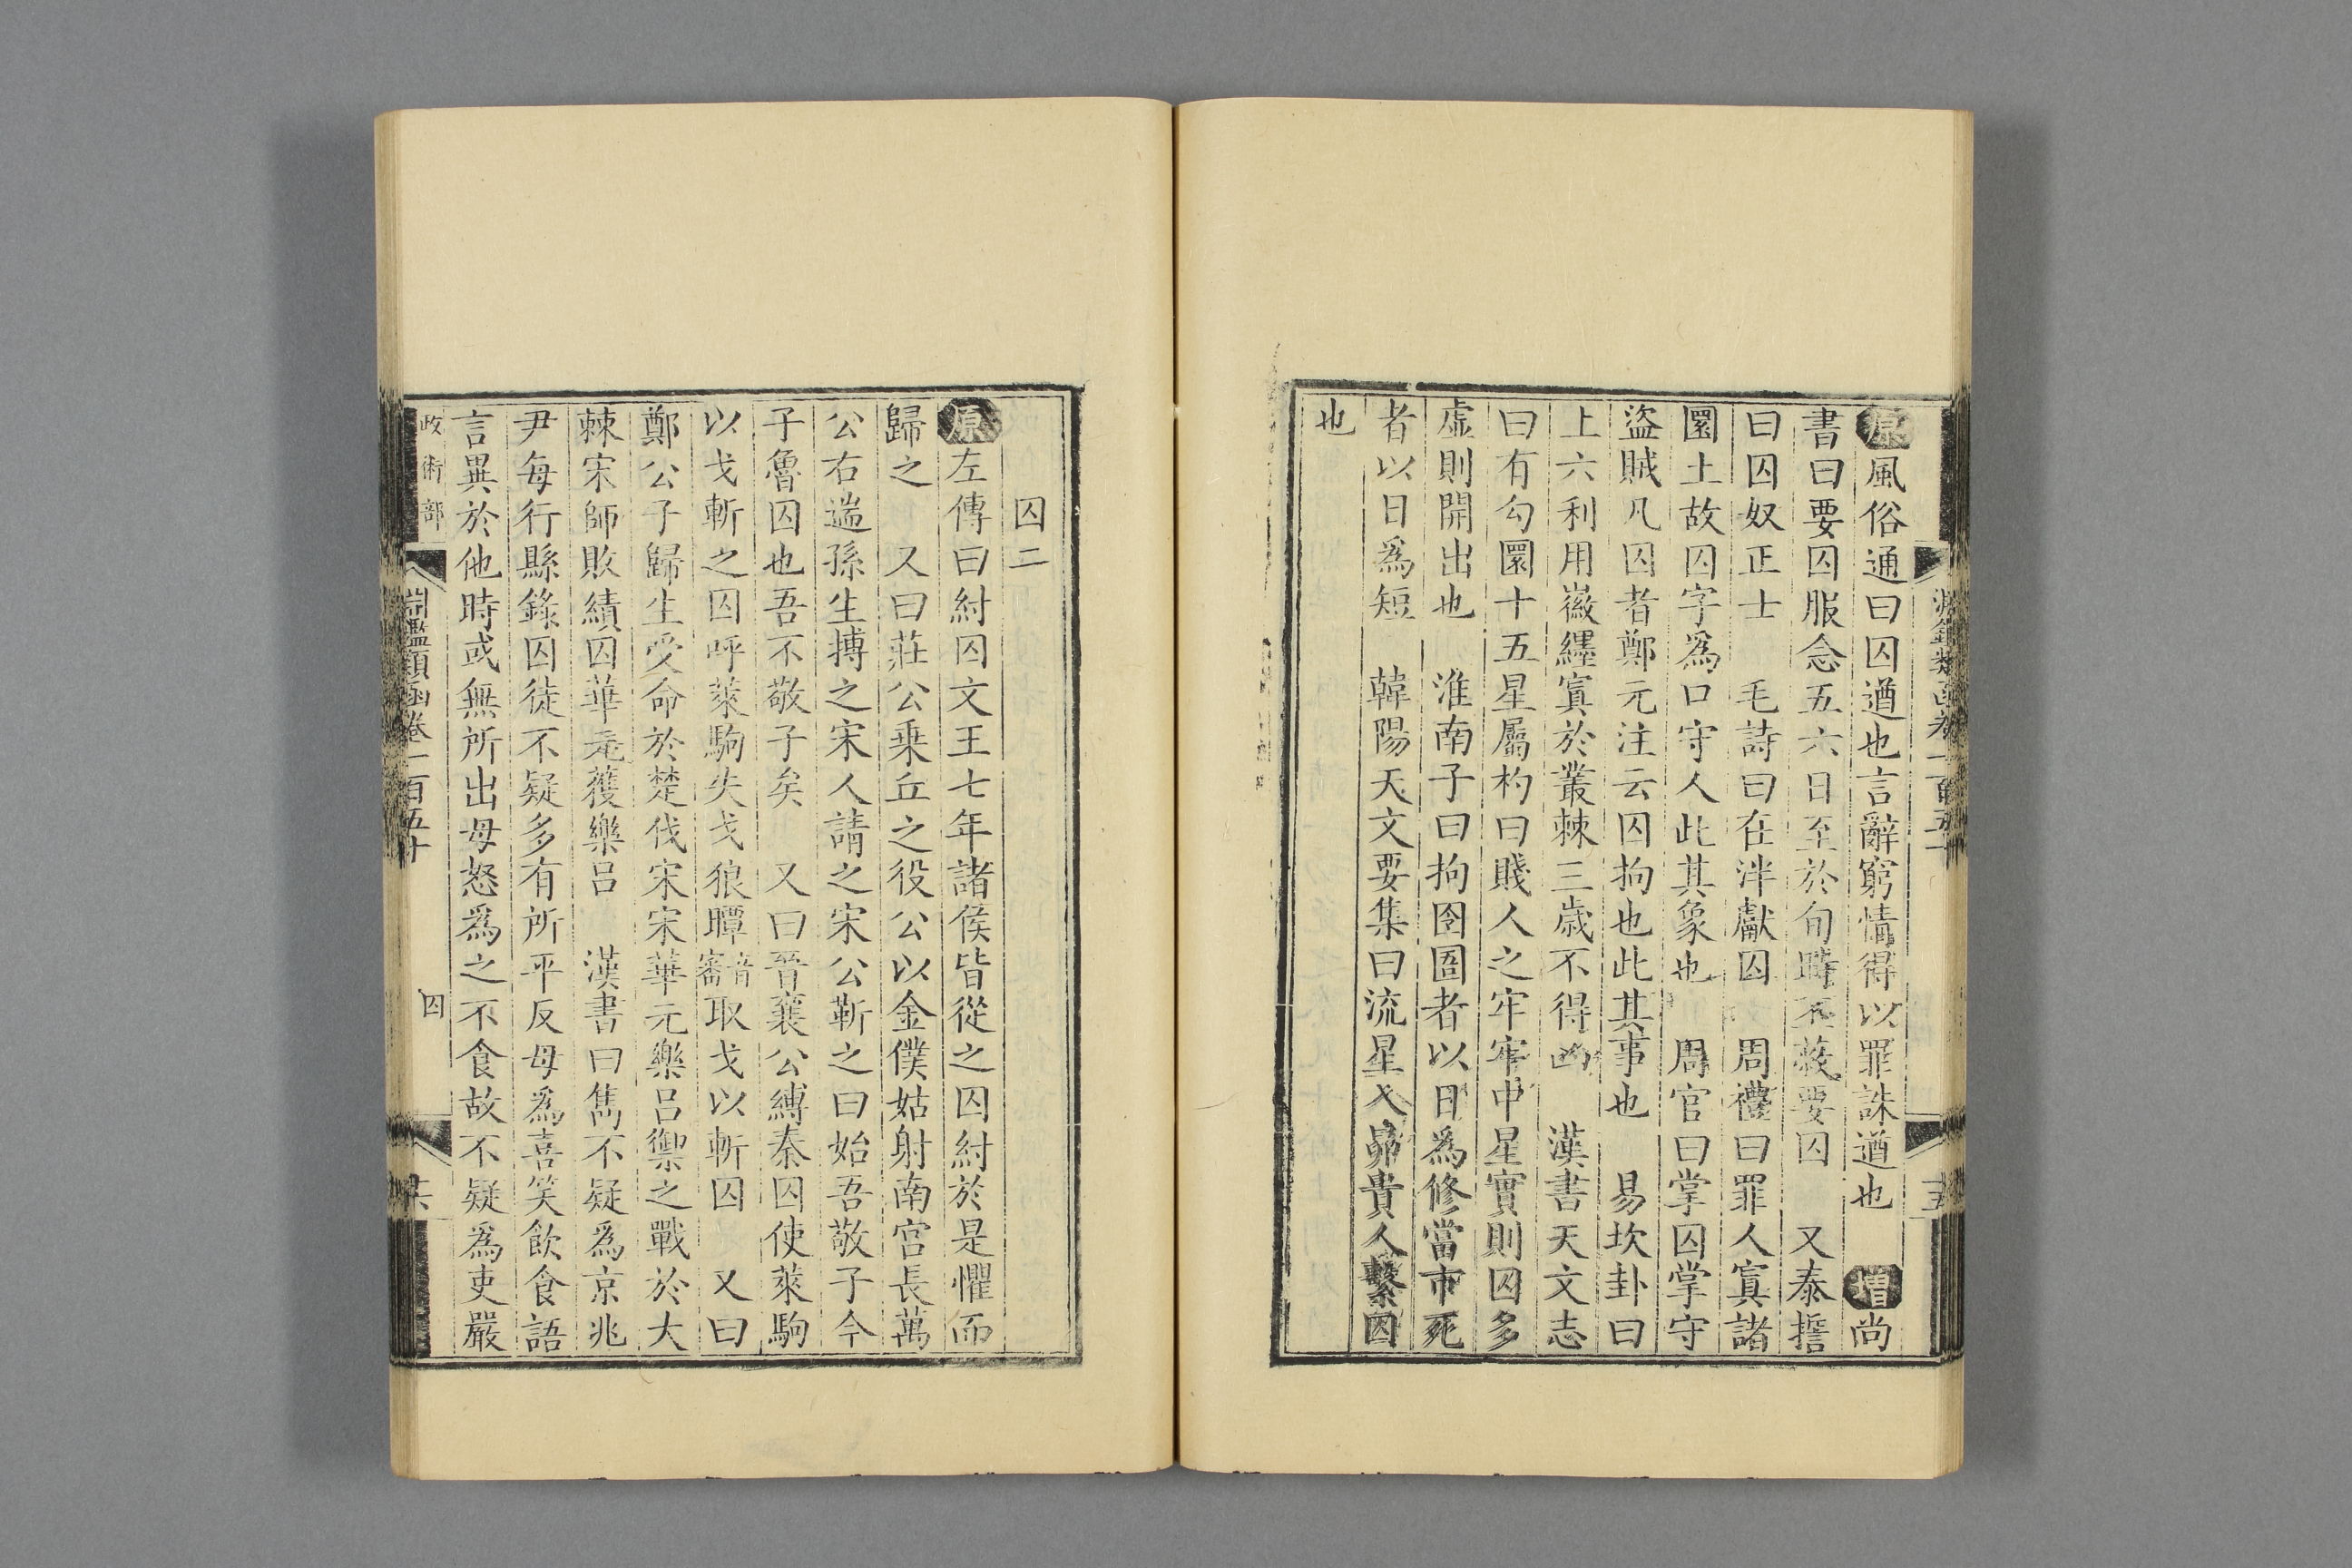 原風俗通曰囚遒也言辭窮情得以罪誅遒也　增尚
書曰要囚服念五六日至於旬時丕蔽要囚　又泰誓
曰囚奴正士　毛詩曰在泮獻囚　周禮曰罪人寘諸
圜土故囚字為口守人此其象也　周官曰掌囚掌守
盜賊凡囚者鄭元注云囚拘也此其事也　易坎卦曰
上六利用徽纆寘於叢棘三歲不得凶　漢書天文志
曰有勾圜十五星屬杓曰賤人之牢牢中星實則囚多
虛則開出也　淮南子曰拘囹圄者以日為修當市死
者以日為短　韓陽天文要集曰流星入昴貴人繫囚
也
囚二
原左傳曰紂囚文王七年諸侯皆從之囚紂於是懼而
歸之　又曰莊公乘丘之役公以金僕姑射南宮長萬
公右遄孫生搏之宋人請之宋公靳之曰始吾敬子今
子魯囚也吾不敬子矣　又曰晉襄公縛秦囚使萊駒
以戈斬之囚呼萊駒失戈狼瞫音審取戈以斬囚　又曰
鄭公子歸生受命於楚伐宋宋華元樂呂禦之戰於大
棘宋師敗績囚華元獲樂呂　漢書曰雋不疑為京兆
尹每行縣錄囚徒不疑多有所平反母為喜笑飲食語
言異於他時或無所出母怒為之不食故不疑為吏嚴
政術部
淵鑑類函卷一百五十
囚